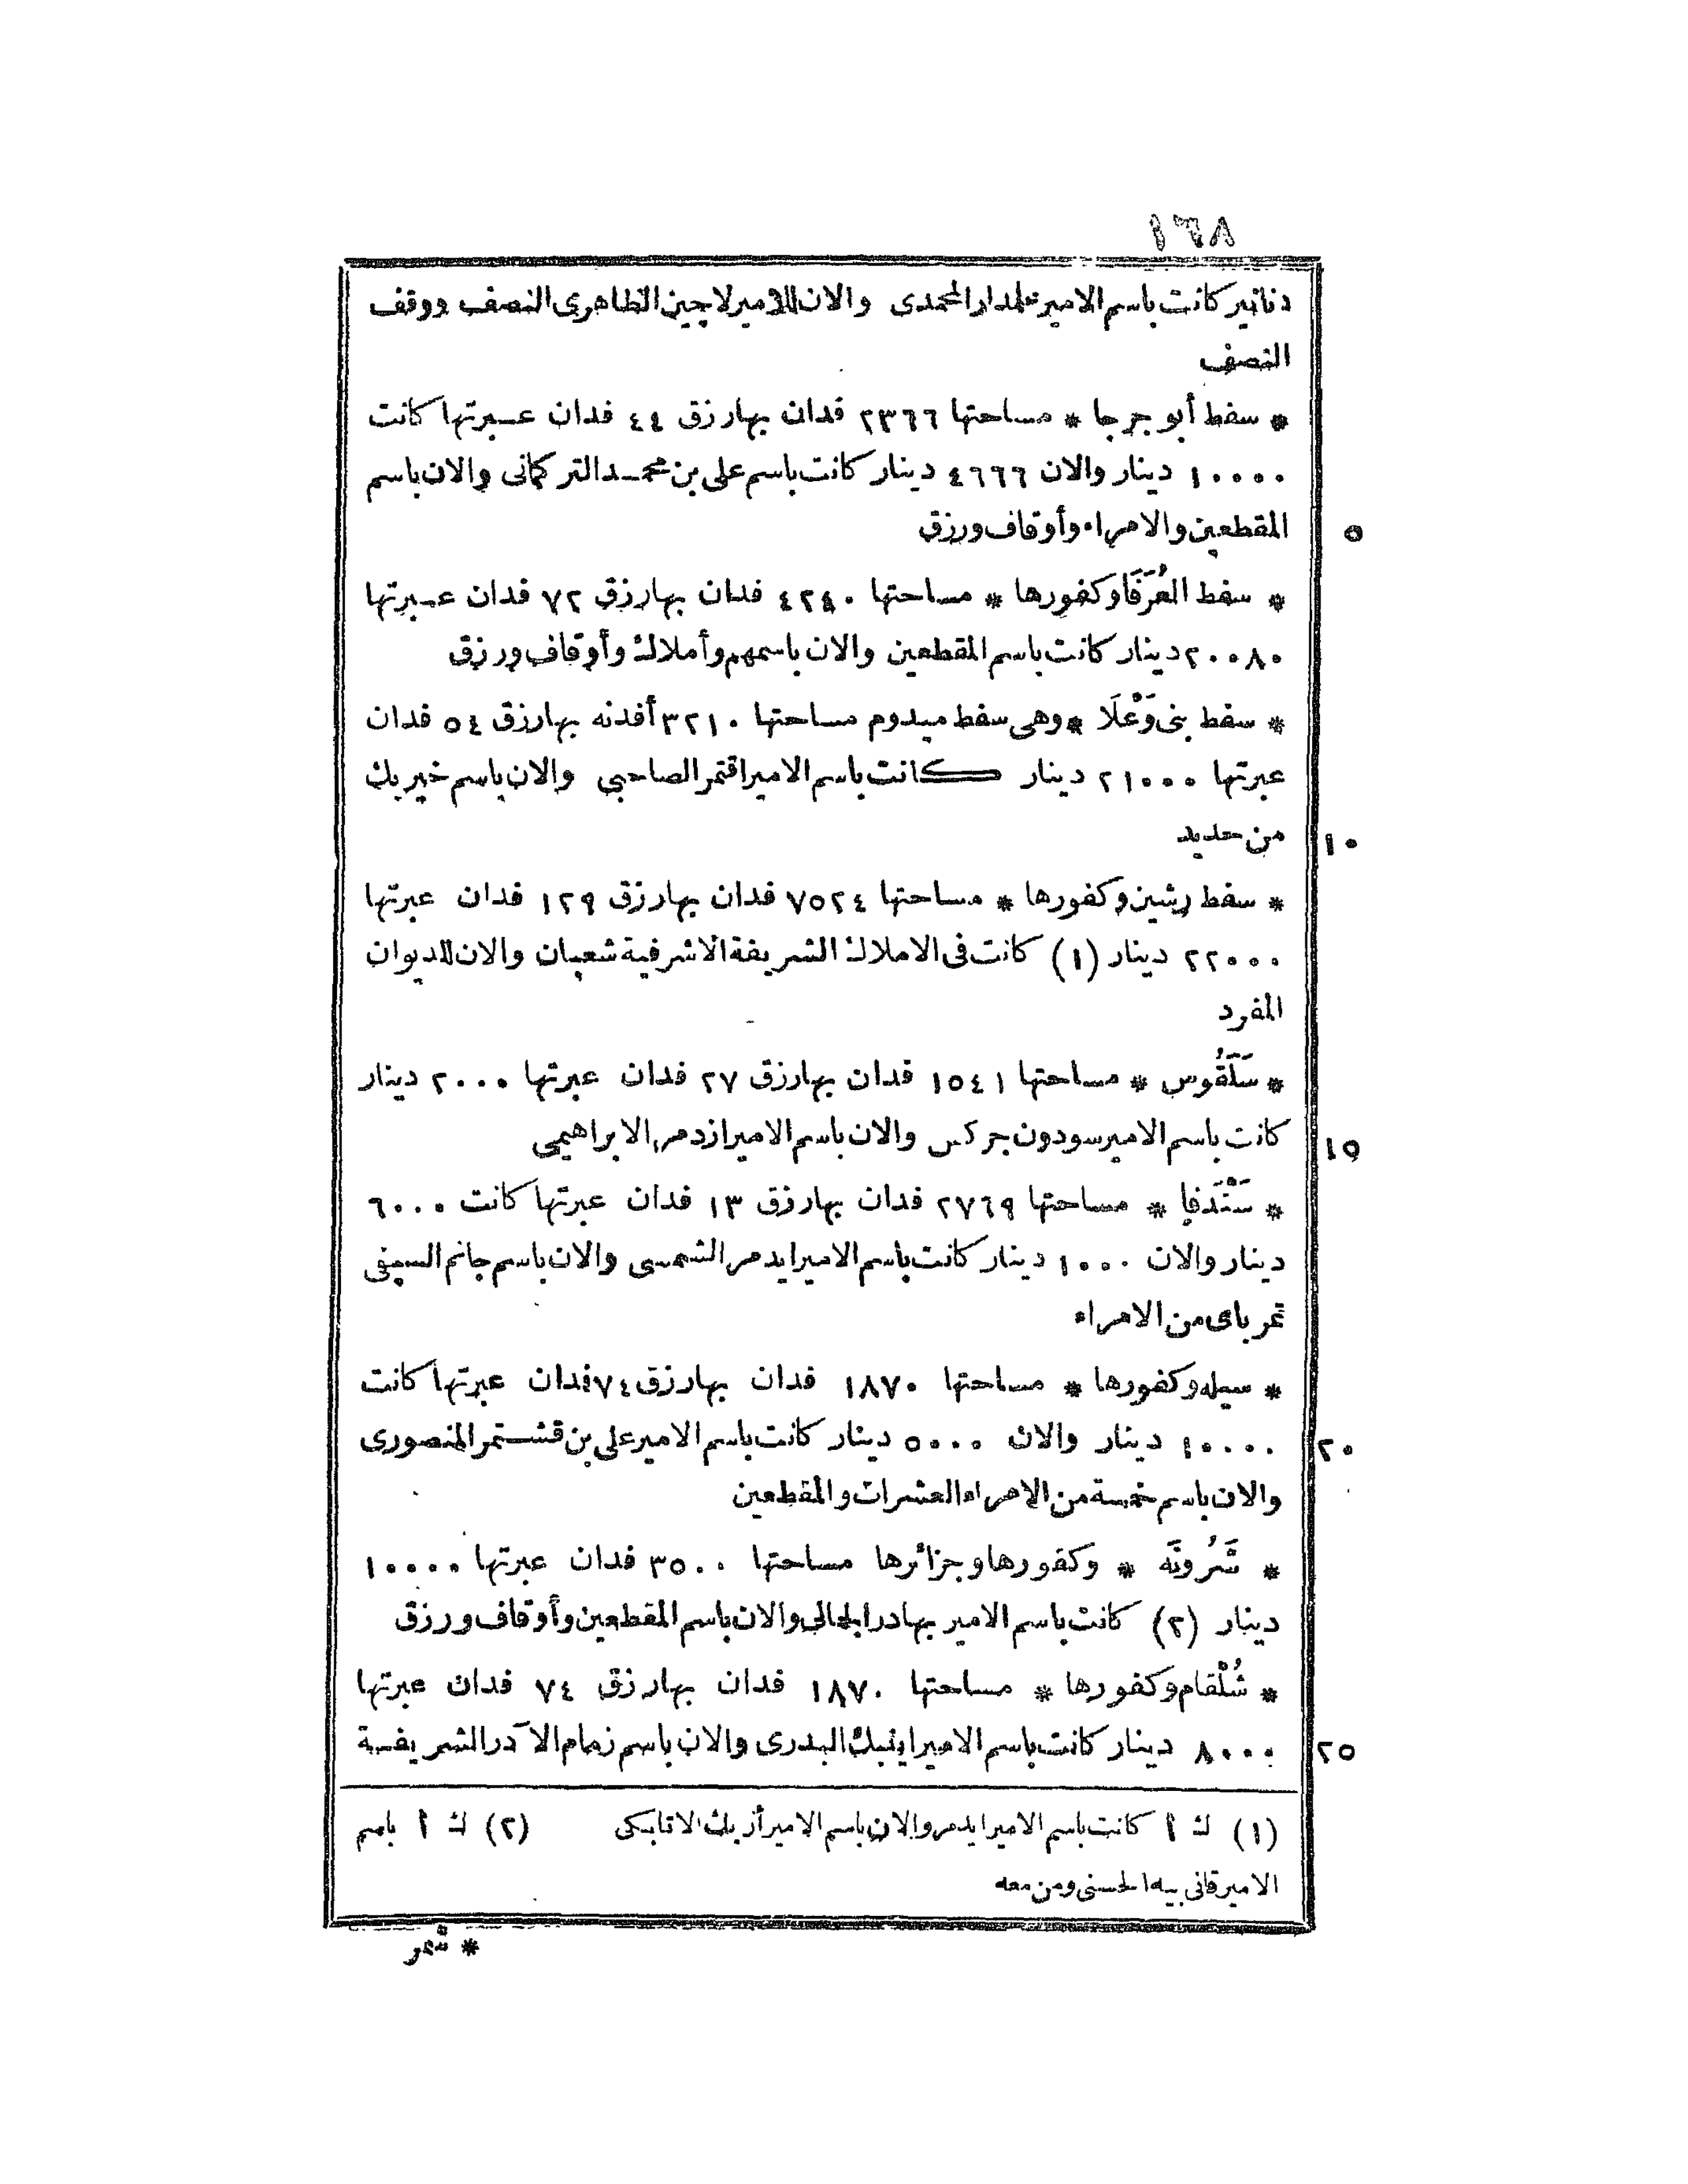 ١٦٨
دنانير كانت باسم الامير علمدار المحمدى والان للامير لاجين الظاهرى النصف ووقف
النصف
* سفط أبو جرجا * مساحتها ٢٣٦٦ فدان بها رزق ٤٤ فدان عبرتها كانت
١٠٠٠٠ دينار والان ٤٦٦٦ دينار كانت باسم على بن محمد التركمانى والان باسم
المقطعين والامراء وأوقاف ورزق
٥
* سفط العُرَفَا وكفورها * مساحتها ٤٢٤٠ فدان بها رزق ٧٢ فدان عبرتها
٢٠٠٨٠ دينار كانت باسم المقطعين والان باسمهم وأملاك وأوقاف ورزق
* سفط بنى وَعْلَا * وهى سفط ميدوم مساحتها ٣٢١٠ أفدنه بها رزق ٥٤ فدان
عبرتها ٢١٠٠٠ دينار كانت باسم الامير اقتمر الصاحبي والان باسم خير بك
من حديد
١٠
* سفط رشين وكفورها * مساحتها ٧٥٢٤ فدان بها رزق ١٢٩ فدان عبرتها
٢٢٠٠٠ دينار (١) كانت فى الاملاك الشريفة الاشرفية شعبان والان للديوان
المفرد
* سَلَقُوس * مساحتها ١٥٤١ فدان بها رزق ٢٧ فدان عبرتها ٢٠٠٠ دينار
كانت باسم الامير سودون جركس والان باسم الامير ازدمر الابراهيمى
١٥
* سَنْدَفا * مساحتها ٢٧٦٩ فدان بها رزق ١٣ فدان عبرتها كانت ٦٠٠٠
دينار والان ١٠٠٠ دينار كانت باسم الامير ايدمر الشمسى والان باسم جانم السيفى
تمر باى من الامراء
* سيله وكفورها * مساحتها ١٨٧٠ فدان بها رزق ٧٤ فدان عبرتها كانت
١٠٠٠٠ دينار والان ٥٠٠٠ دينار كانت باسم الامير على بن قشتمر المنصورى
٢٠
والان باسم خمسة من الامراء العشرات والمقطعين
* شَرُونَه * وكفورها وجزائرها مساحتها ٣٥٠٠ فدان عبرتها ١٠٠٠٠
دينار (٢) كانت باسم الامير بهادر الجمالى والان باسم المقطعين وأوقاف ورزق
* شُلْقام وكفورها * مساحتها ١٨٧٠ فدان بها رزق ٧٤ فدان عبرتها
٨٠٠٠ دينار كانت باسم الامير اينبك البدرى والان باسم زمام الآدر الشريفة
٢٥
(١) ك أ كانت باسم الامير ايدمر والان باسم الامير أزبك الاتابكى (٢) ك أ باسم
الامير قانى بيه الحسنى ومن معه
* شمر